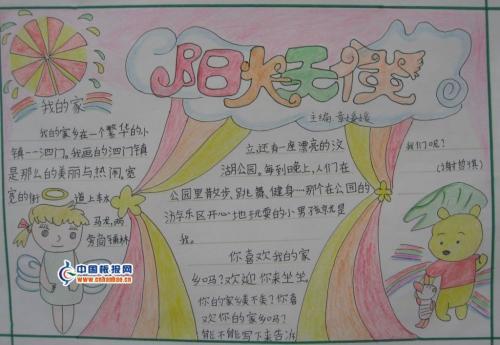 阳火天使
主编:章媛媛
我的家
我的家乡在一个繁华的小
镇——泗门。我画的泗门镇
是那么的美丽与热闹,宽
宽的街道上车水
马龙,两
旁商铺林
立,还有一座漂亮的汝
湖公园。每到晚上,人们在
公园里散步、跳舞、健身…那个在公园的
游乐区开心地玩耍的小男孩就是
我。
你喜欢我的家
乡吗?欢迎你来坐坐,
你的家乡美不美?你喜
欢你的家乡吗?
能不能写下来告诉
我们呢?
中国板报网
www.cnbanbao.cn